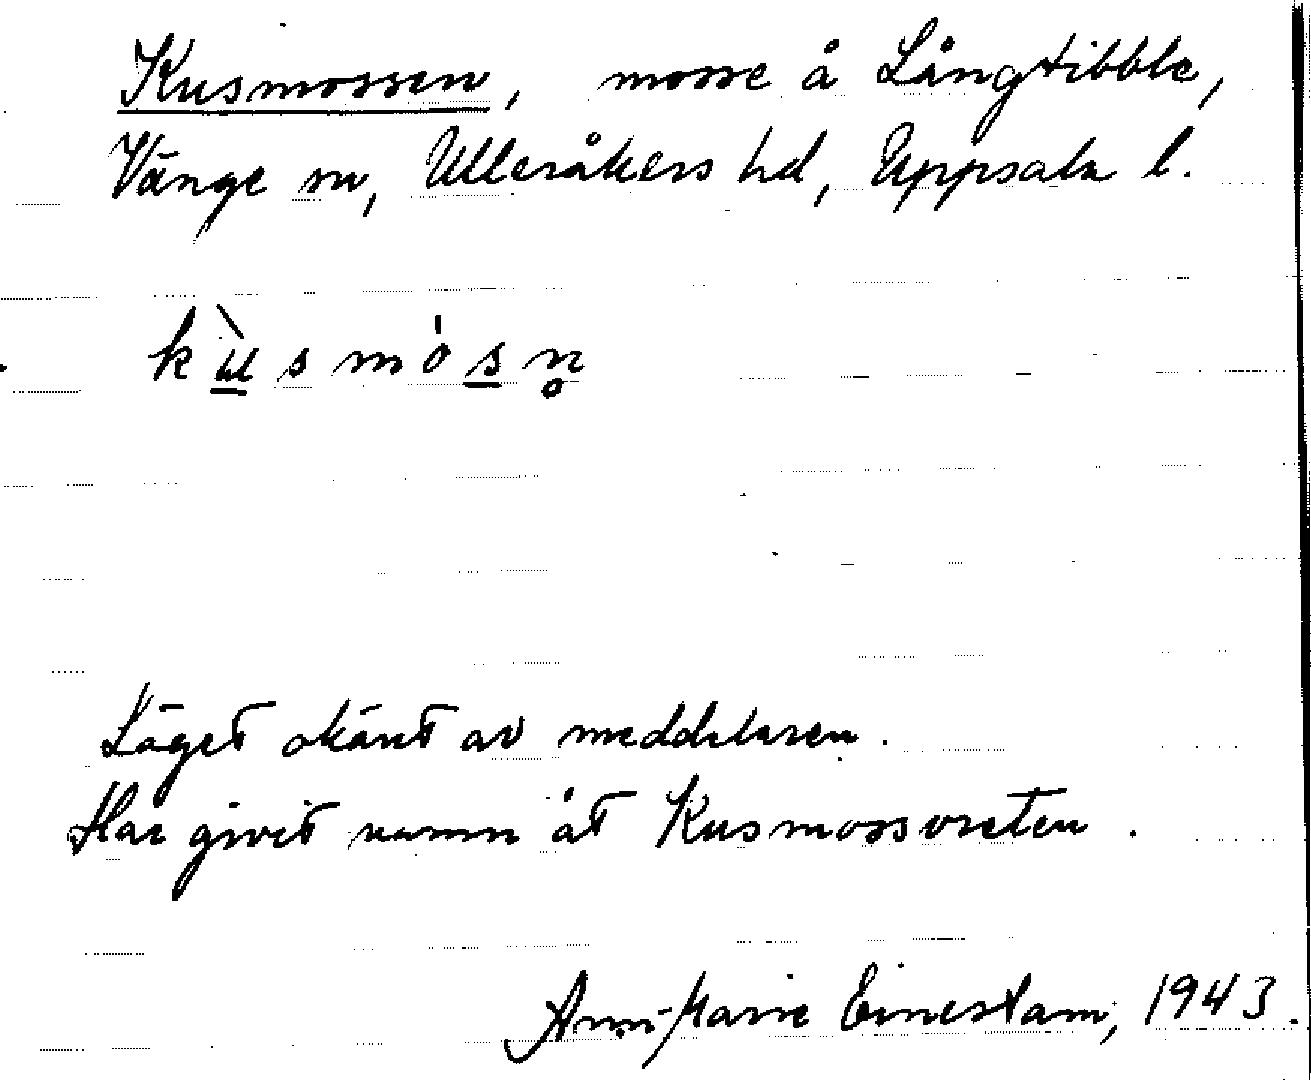 Kusmossen, mosse å Långtibble,
Vänge sn, Ulleråkers hd, Uppsala l.
kùsmósn̥
Läget okänt av meddelaren.
Har givit namn åt Kusmossvreten.
Ann-Marie Einestam, 1943.